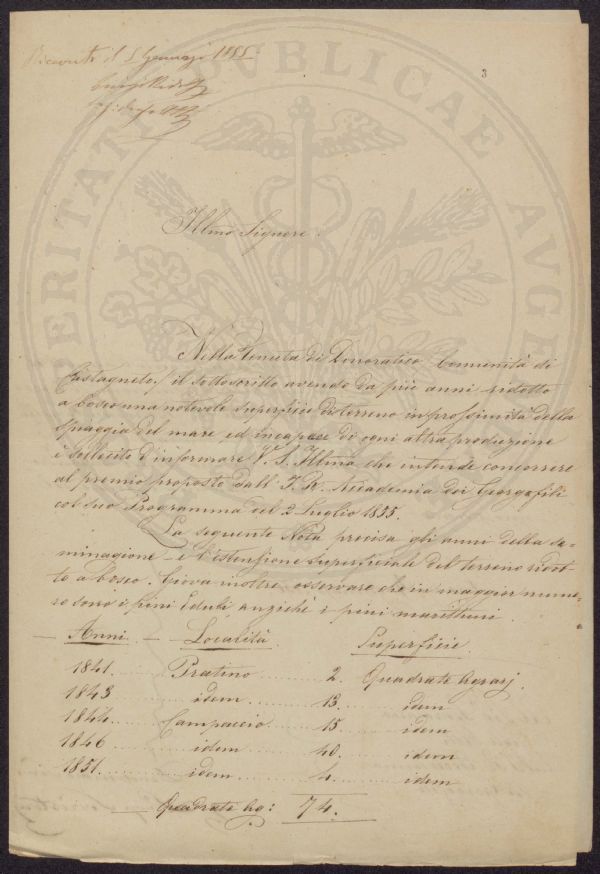 Ricevuta il 5 Gennajo 1855
3
Illmo Signore.
Nella Tenuta di Donoratico Comunità di
Castagneto, il sottoscritto avendo da più anni ridotto
a bosco una notevole superficie di terreno in prossimità della
spiaggia del mare, ed incapace di ogni altra produzione
è sollecito d'informare V. S. Illma che intende concorrere
al premio proposto dall' I. R. Accademia dei Georgofili
col suo Programma del 2 Luglio 1855.
La seguente Nota precisa gli anni della se-
minagione e l'estensione superficiale del terreno ridot-
to a bosco. Giova inoltre osservare che in maggior nume-
ro sono i pini Edulé anzichè i pini marittimi.
Anni. Località Superficie
1841. Pratino 2. Quadrate Agrarj.
1843 idem 13. idem
1844. Campaccio 15. idem
1846 idem 40. idem
1851. idem 4. idem
Quadrate Ag: 74.
PUBLICAE